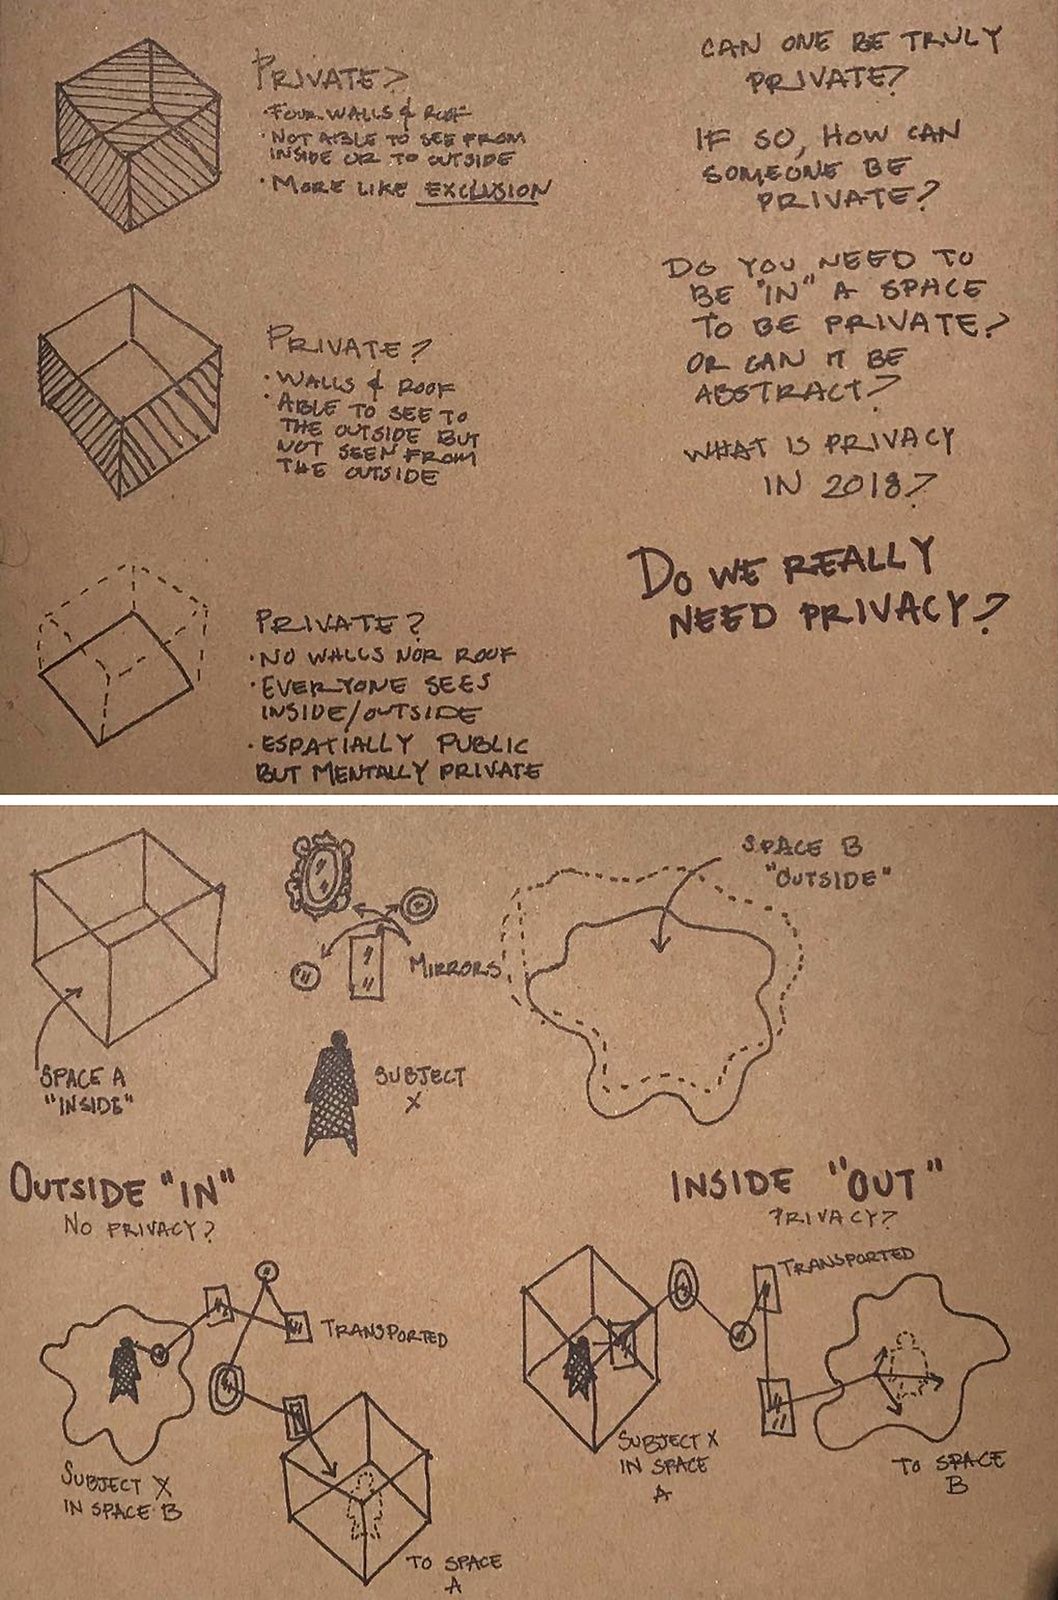 PRIVATE?
·FOUR WALLS & ROOF
·NOT AIBLE TO SEE FROM
INSIDE OR TO OUTSIDE
·MORE LIKE EXCLUSION
PRIVATE?
·WALLS & ROOF
·ABLE TO SEE TO
THE OUTSIDE BUT
NOT SEEN FROM
THE OUTSIDE
PRIVATE?
·NO WALLS NOR ROOF
·EVERYONE SEES
INSIDE/OUTSIDE
·ESPATIALLY PUBLIC
BUT MENTALLY PRIVATE
CAN ONE BE TRULY
PRIVATE?
IF SO, HOW CAN
SOMEONE BE
PRIVATE?
DO YOU NEED TO
BE "IN" A SPACE
TO BE PRIVATE?
OR CAN IT BE
ABSTRACT?
WHAT IS PRIVACY
IN 2018?
DO WE REALLY
NEED PRIVACY?
SPACE A
"INSIDE"
MIRRORS
SUBJECT
X
SPACE B
"OUTSIDE"
OUTSIDE "IN"
NO PRIVACY?
TRANSPORTED
SUBJECT X
IN SPACE B
TO SPACE
A
INSIDE "OUT"
PRIVACY?
TRANSPORTED
SUBJECT X
IN SPACE
A
TO SPACE
B